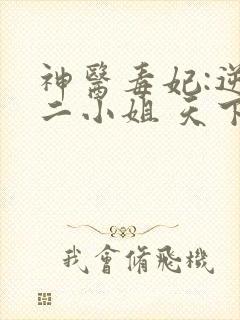 神醫毒妃:逆
二小姐 天下
我會脩飛機